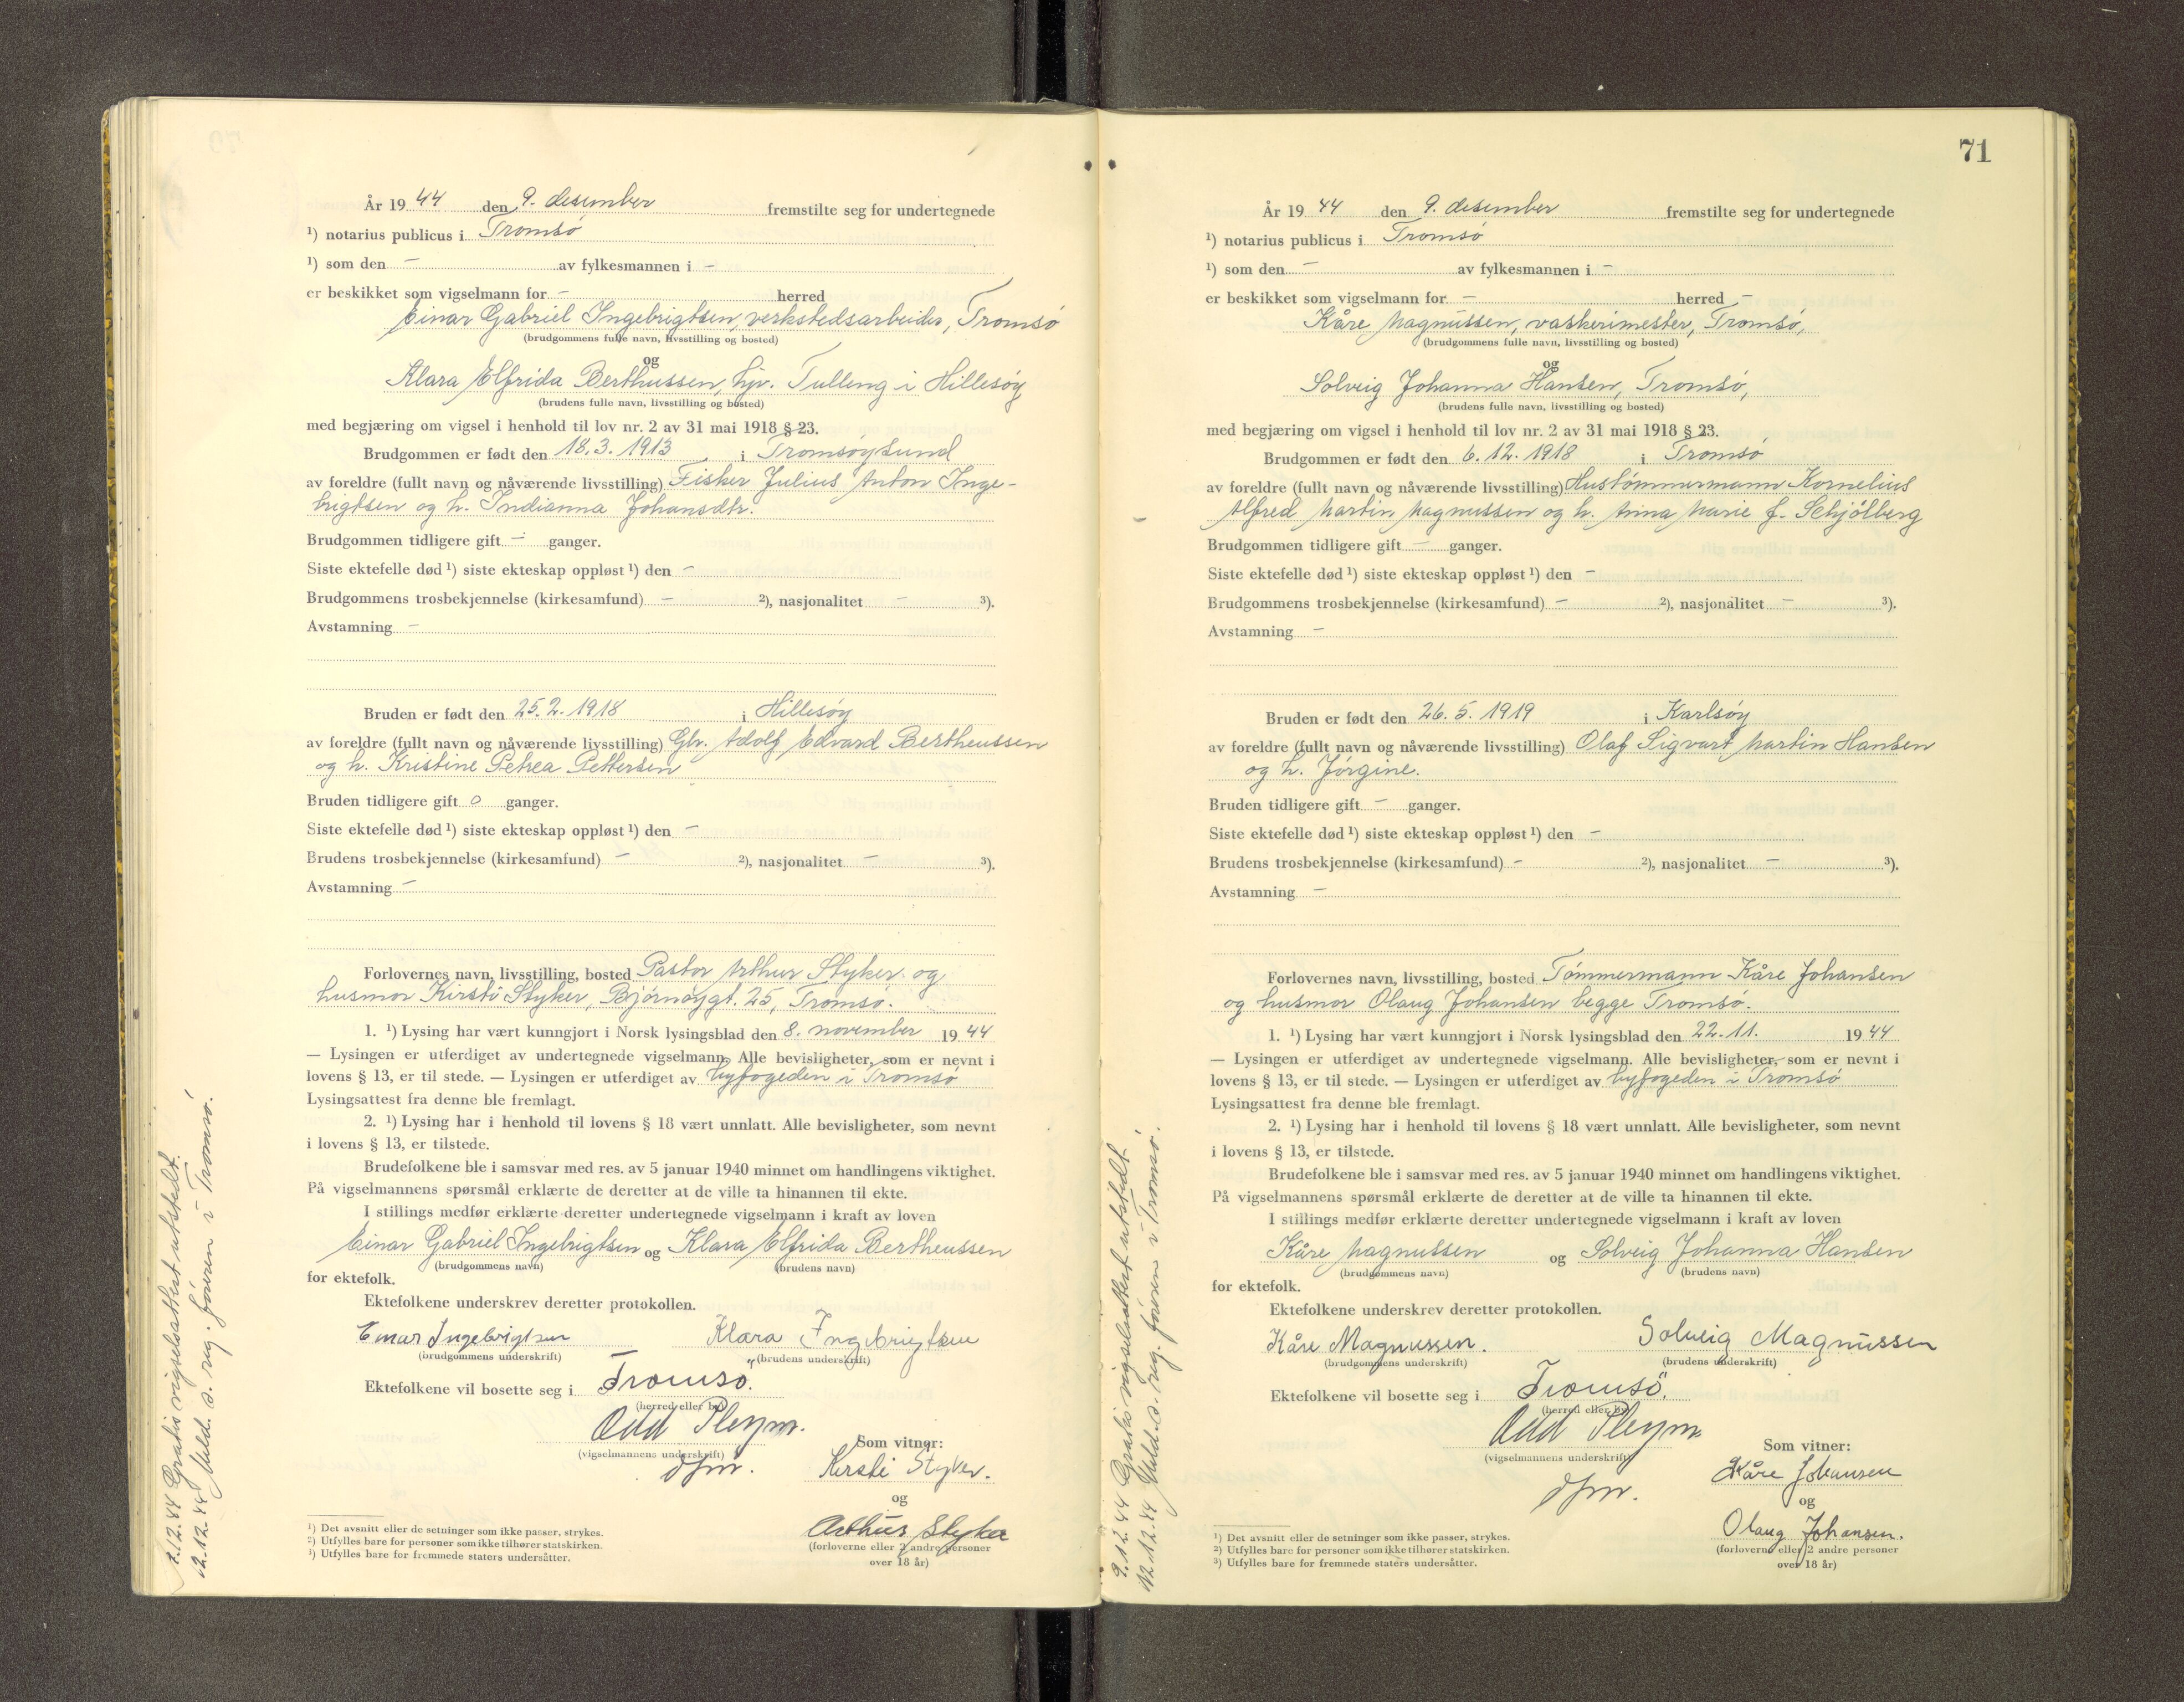 År 1944 den 9. desember fremstilte seg for undertegnede
¹) notarius publicus i Tromsø
¹) som den – av fylkesmannen i –
er beskikket som vigselmann for – herred
Einar Gabriel Ingebrigtsen, verkstedsarbeider, Tromsø
(brudgommens fulle navn, livsstilling og bosted)
og
Klara Elfrida Berthussen, hjv. Tulleng i Hillesøy
(brudens fulle navn, livsstilling og bosted)
med begjæring om vigsel i henhold til lov nr. 2 av 31 mai 1918 § 23.
Brudgommen er født den 18.3.1913 i Tromsøysund
av foreldre (fullt navn og nåværende livsstilling) Fisker Julius Anton Inge-
brigtsen og h. Indianna Johansdtr.
Brudgommen tidligere gift – ganger.
Siste ektefelle død ¹) siste ekteskap oppløst ¹) den –
Brudgommens trosbekjennelse (kirkesamfund) – ²), nasjonalitet – ³).
Avstamning –
Bruden er født den 25.2.1918 i Hillesøy
av foreldre (fullt navn og nåværende livsstilling) Gbr. Adolf Edvard Bertheussen
og h. Kristine Petrea Pettersen
Bruden tidligere gift 0 ganger.
Siste ektefelle død ¹) siste ekteskap oppløst ¹) den –
Brudens trosbekjennelse (kirkesamfund) – ²), nasjonalitet – ³).
Avstamning –
Forlovernes navn, livsstilling, bosted Pastor Arthur Styker og
husmor Kirsti Styker, Bjørnøygt. 25, Tromsø.
1. ¹) Lysing har vært kunngjort i Norsk lysingsblad den 8. november 1944
— Lysingen er utferdiget av undertegnede vigselmann. Alle bevisligheter, som er nevnt i
lovens § 13, er til stede. — Lysingen er utferdiget av byfogeden i Tromsø
Lysingsattest fra denne ble fremlagt.
2. ¹) Lysing har i henhold til lovens § 18 vært unnlatt. Alle bevisligheter, som nevnt
i lovens § 13, er tilstede.
Brudefolkene ble i samsvar med res. av 5 januar 1940 minnet om handlingens viktighet.
På vigselmannens spørsmål erklærte de deretter at de ville ta hinannen til ekte.
I stillings medfør erklærte deretter undertegnede vigselmann i kraft av loven
Einar Gabriel Ingebrigtsen og Klara Elfrida Bertheussen
(brudgommens navn) (brudens navn)
for ektefolk.
Ektefolkene underskrev deretter protokollen.
Einar Ingebrigtsen Klara Ingebrigtsen
(brudgommens underskrift) (brudens underskrift)
Ektefolkene vil bosette seg i Tromsö.
(herred eller by)
Odd Pleym.
(vigselmannens underskrift)
dfm.
Som vitner:
Kirsti Styker.
og
Arthur Styker
(forloverne eller 2 andre personer
over 18 år)
¹) Det avsnitt eller de setninger som ikke passer, strykes.
²) Utfylles bare for personer som ikke tilhører statskirken.
³) Utfylles bare for fremmede staters undersåtter.
9.12.44 Gratis vigselsattest utstedt.
12.12.44 Meld. s. reg. føreren i Tromsø.
71
År 1944 den 9. desember fremstilte seg for undertegnede
¹) notarius publicus i Tromsø
¹) som den – av fylkesmannen i –
er beskikket som vigselmann for – herred –
Kåre Magnussen, vaskerimester, Tromsø,
(brudgommens fulle navn, livsstilling og bosted)
og
Solveig Johanna Hansen, Tromsø,
(brudens fulle navn, livsstilling og bosted)
med begjæring om vigsel i henhold til lov nr. 2 av 31 mai 1918 § 23.
Brudgommen er født den 6.12.1918 i Tromsø
av foreldre (fullt navn og nåværende livsstilling) Hustømmermann Kornelius
Alfred Martin Magnussen og h. Anna Marie f. Schjølberg
Brudgommen tidligere gift – ganger.
Siste ektefelle død ¹) siste ekteskap oppløst ¹) den –
Brudgommens trosbekjennelse (kirkesamfund) – ²), nasjonalitet – ³).
Avstamning –
Bruden er født den 26.5.1919 i Karlsøy
av foreldre (fullt navn og nåværende livsstilling) Olaf Sigvart Martin Hansen
og h. Jørgine.
Bruden tidligere gift – ganger.
Siste ektefelle død ¹) siste ekteskap oppløst ¹) den –
Brudens trosbekjennelse (kirkesamfund) – ²), nasjonalitet – ³).
Avstamning –
Forlovernes navn, livsstilling, bosted Tømmermann Kåre Johansen
og husmor Olaug Johansen begge Tromsø.
1. ¹) Lysing har vært kunngjort i Norsk lysingsblad den 22.11. 1944
— Lysingen er utferdiget av undertegnede vigselmann. Alle bevisligheter, som er nevnt i
lovens § 13, er til stede. — Lysingen er utferdiget av byfogeden i Tromsø
Lysingsattest fra denne ble fremlagt.
2. ¹) Lysing har i henhold til lovens § 18 vært unnlatt. Alle bevisligheter, som nevnt
i lovens § 13, er tilstede.
Brudefolkene ble i samsvar med res. av 5 januar 1940 minnet om handlingens viktighet.
På vigselmannens spørsmål erklærte de deretter at de ville ta hinannen til ekte.
I stillings medfør erklærte deretter undertegnede vigselmann i kraft av loven
Kåre Magnussen og Solveig Johanna Hansen
(brudgommens navn) (brudens navn)
for ektefolk.
Ektefolkene underskrev deretter protokollen.
Kåre Magnussen. Solveig Magnussen
(brudgommens underskrift) (brudens underskrift)
Ektefolkene vil bosette seg i Tromsö.
(herred eller by)
Odd Pleym
(vigselmannens underskrift)
dfm.
Som vitner:
Kåre Johansen
og
Olaug Johansen.
(forloverne eller 2 andre personer
over 18 år)
¹) Det avsnitt eller de setninger som ikke passer, strykes.
²) Utfylles bare for personer som ikke tilhører statskirken.
³) Utfylles bare for fremmede staters undersåtter.
9.12.44 Gratis vigselsattest utstedt
12.12.44 Meld. s. reg. føreren i Tromsø.